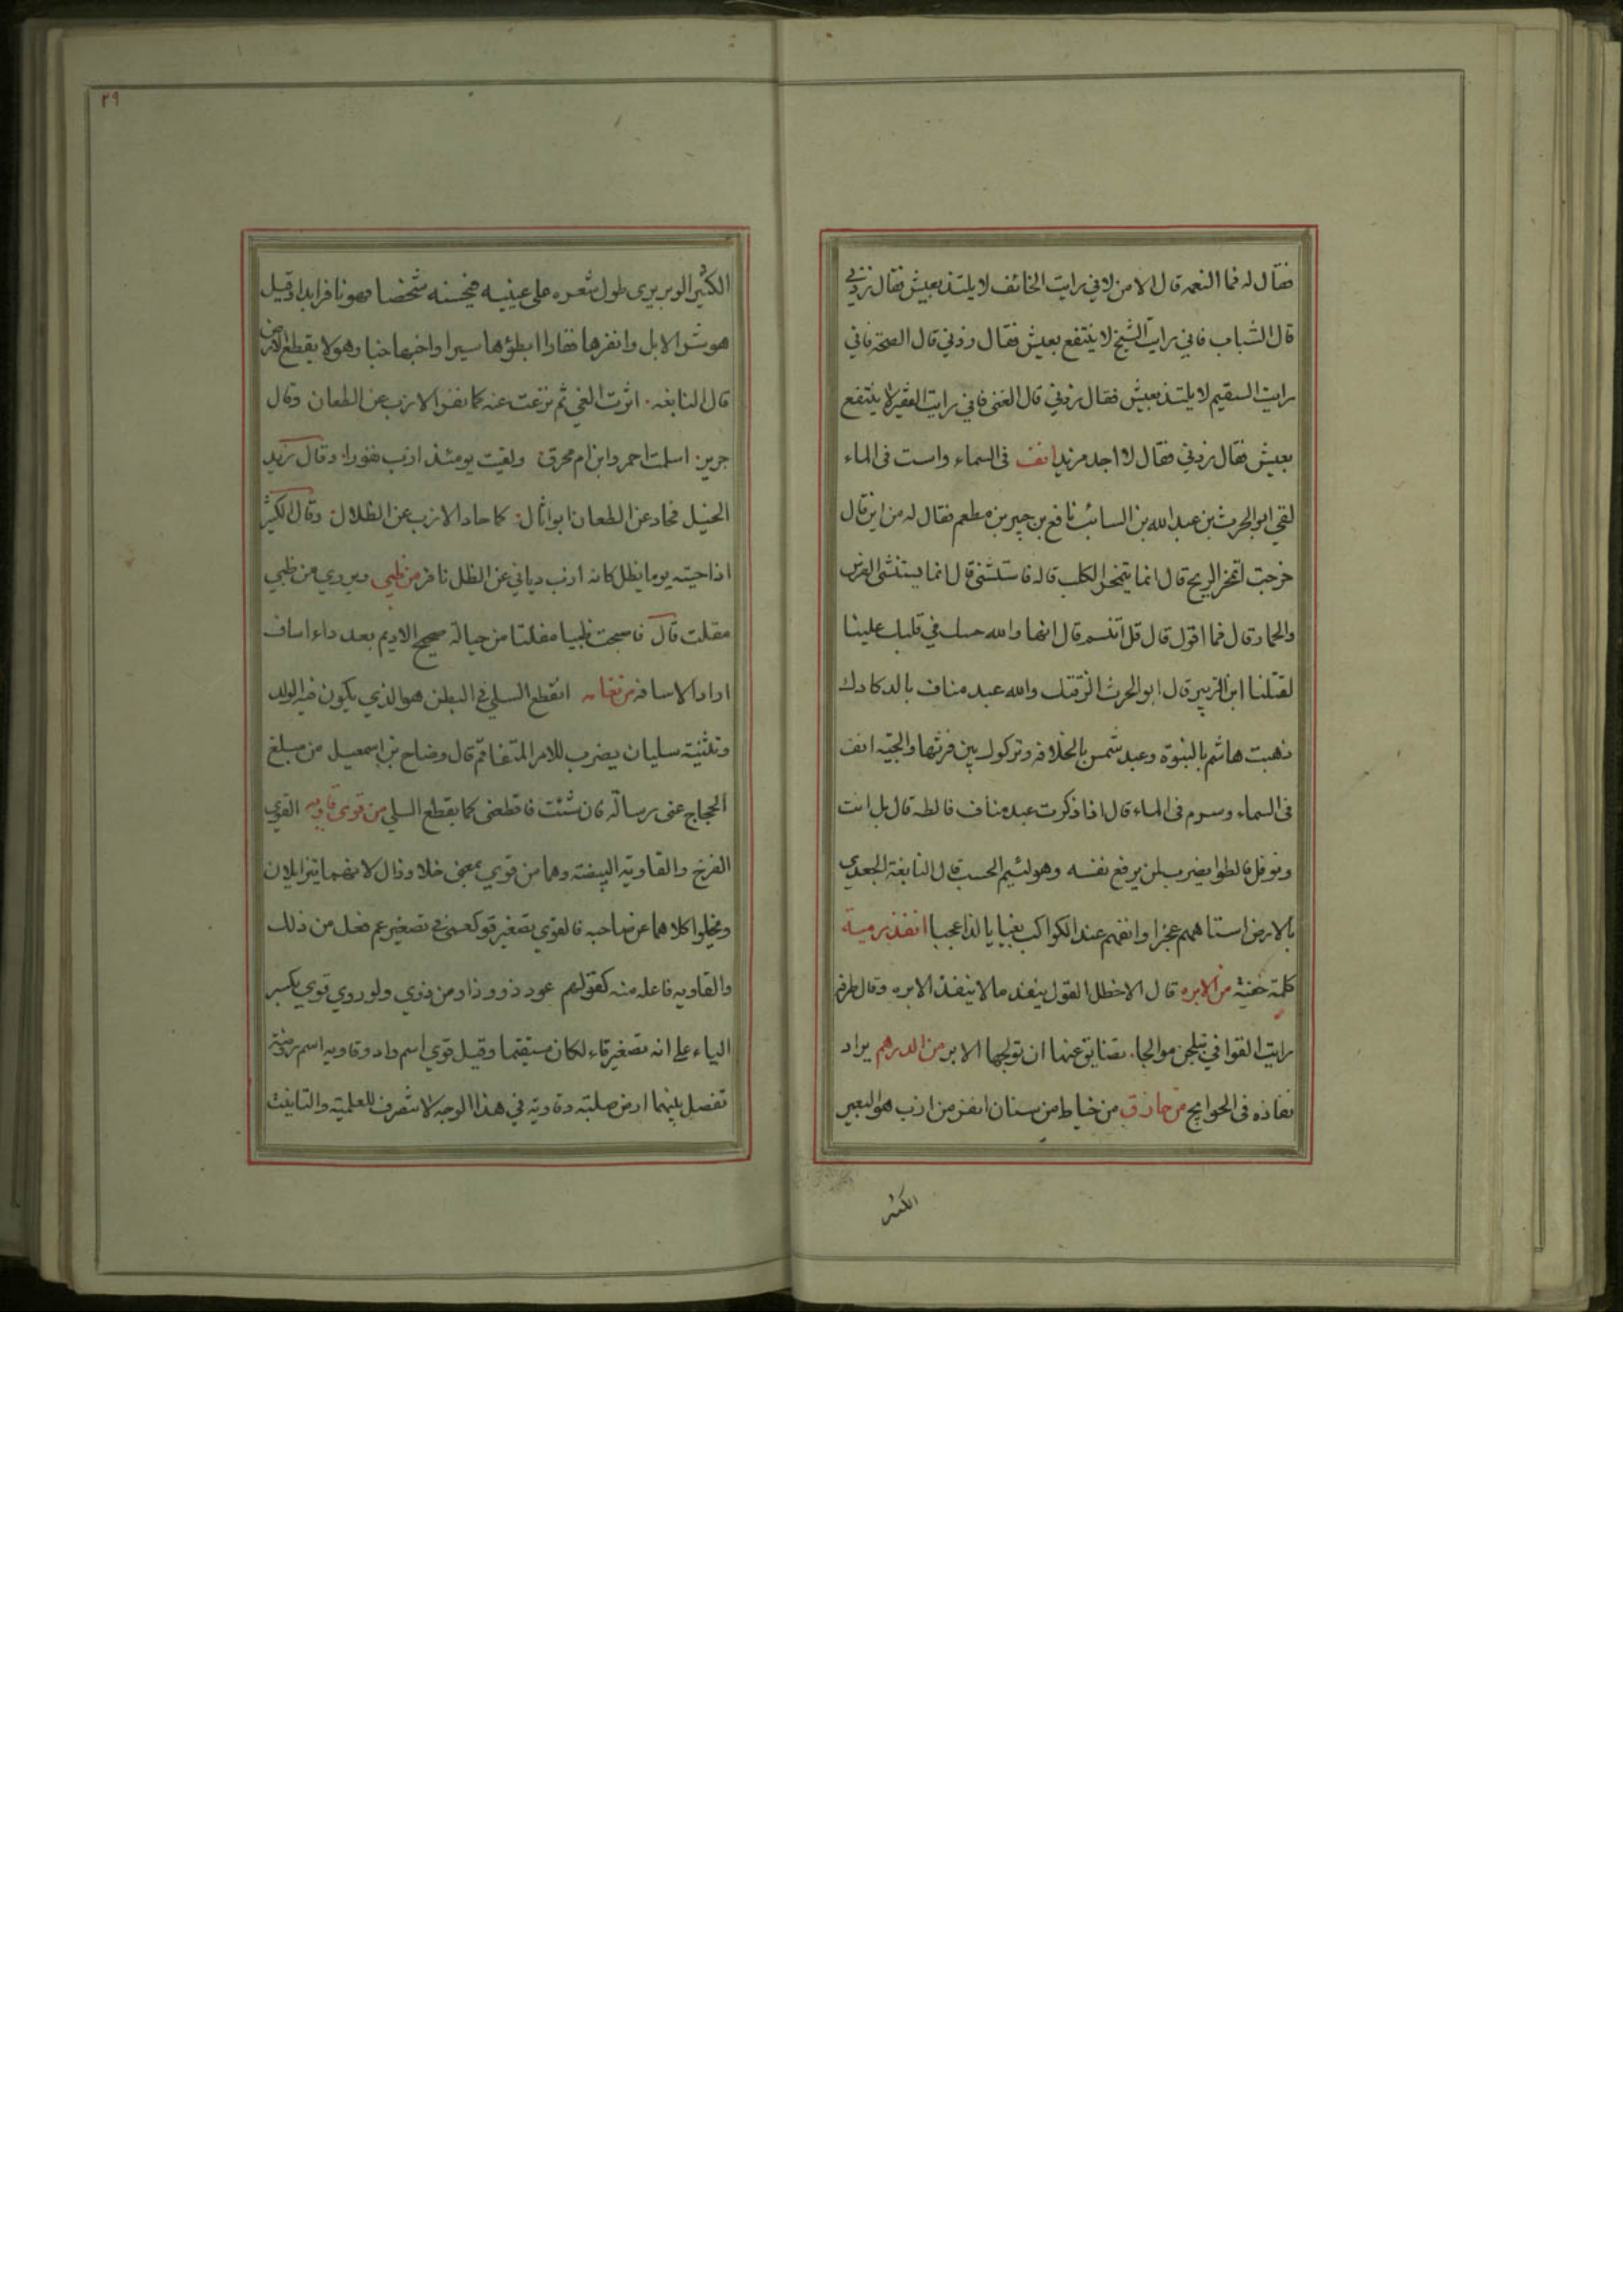 فقال له فما النعمة قال الامن لاني رايت الخائف لا يلتذ بعيش فقال زدني
قال الشباب فاني رايت الشيخ لا ينتفع بعيش فقال زدني قال الصحة فاني
رايت السقيم لا يلتذ بعيش فقال زدني قال الغنى فاني رايت الفقير لا ينتفع
بعيش فقال زدني فقال لا اجد مزيدا انف فى السماء واست فى الماء
لقي ابو الحرث بن عبد الله بن السائب نافع بن جبير بن مطعم فقال له من اين قال
خرجت اتمخر الريح قال انما يتمخر الكلب قال فاستنشي قال انما يستنشى الفرس
والحمار قال فما اقول قال قل اتنسم قال انها والله حسك في قلبك علينا
لقتلنا ابن الزبير قال ابو الحرث الزقتك والله عبد مناف بالدكادك
ذهبت هاشم بالنبوة وعبد شمس بالخلافة وتركوك بين فرثها والجية انف
فى السماء وسرم فى الماء قال اذا ذكرت عبد مناف فالطه قال بل انت
ونوفل فالطوا يضرب لمن يرفع نفسه وهو لئيم الحسب قال النابغة الجعدي
بالارض استاههم عجزا وانفهم عند الكواكب بغيا يا لذا عجبا انفذ برمية
كلمة خفية من الابره قال الاخطل القول ينفذ ما لا ينفذ الابره وقال طرفة
رايت القوافي يتلجن موالجا. تضايق عنها ان تولجها الابر من الدرهم يراد
نفاذه فى الحوايج من حازق من خياط من سنان انفز من ازب هو البعير
الكثير
٢٩
الكثير الوبر يرى طول شعره على عينيه فيحسبه شخصا فهو نافر ابدا وقيل
هو شر الابل وانفرها نفارا ابطؤها سيرا واخبها خبا وهو لا يقطع الارض
قال النابغه. اثرت الغي ثم نزعت عنه كما نفر الازب عن الطعان وقال
جرير. اسلمت احمر وابن ام محرق. ولقيت يومئذ ازب نفورا. وقال زيد
الخيل فحاد عن الطعان ابو اثال. كما حاد الازب عن الظلال. وقال الكثير
اذا جيته يوما يظل كانه ازب دياني عن الظل نافر من ظبي ويروي من ظبي
مقلت قال فاصبحت ظبيا مفلتا من حبالة صحيح الاديم بعد داء اساف
اراد الاسافه من نعامه انقطع السلي في البطن هو الذي يكون فيه الولد
وتثنيته سليان يضرب للامر المتفاقم قال وضاح بن اسمعيل من مبلغ
الحجاج عني رسالة فان شئت فاقطعني كما يقطع السلي من قوى قاويه القوي
الفرخ والقاوية البيضة وهما من قوي بمعنى خلا وذال لانهما يتزايلان
ويخلوا كلاهما عن صاحبه فالقوي تصغير قو كعمى في تصغير عم فعل من ذلك
والقاويه فاعله منه كقولهم عود ذو وذاو من ذوى ولو روي قوي بكسر
الياء على انه تصغير قاء لكان مستقيما وقيل قوي اسم واد وقاويه اسم روضة
تفصل بينهما ارض صلبة وقاوية في هذا الوجه لا تنصرف للعلمية والتانيث